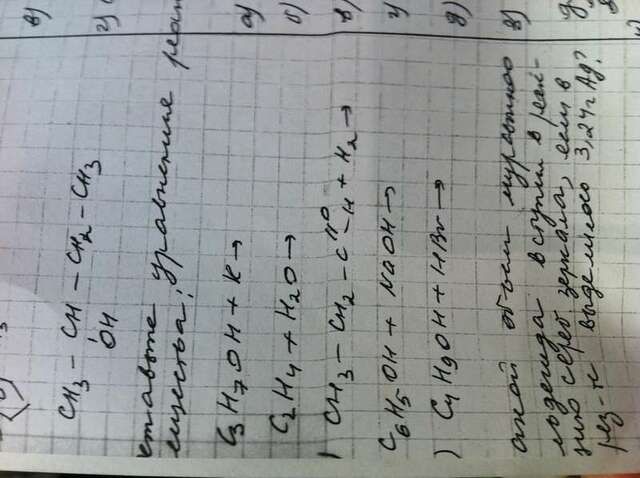 CH3 – CH – CH2 – CH3
OH
ставьте уравнение реак
ещества:
C3H7OH + K →
C2H4 + H2O →
) CH3 – CH2 – C =O – H + H2 →
C6H5OH + NaOH →
) C4H9OH + HBr →
акой объем муравьиного
льдегида вступил в реак-
цию сереб зеркала, если в
рез-те выделилось 3,24г Ag?
в)
г)
а)
б)
в)
г)
д)